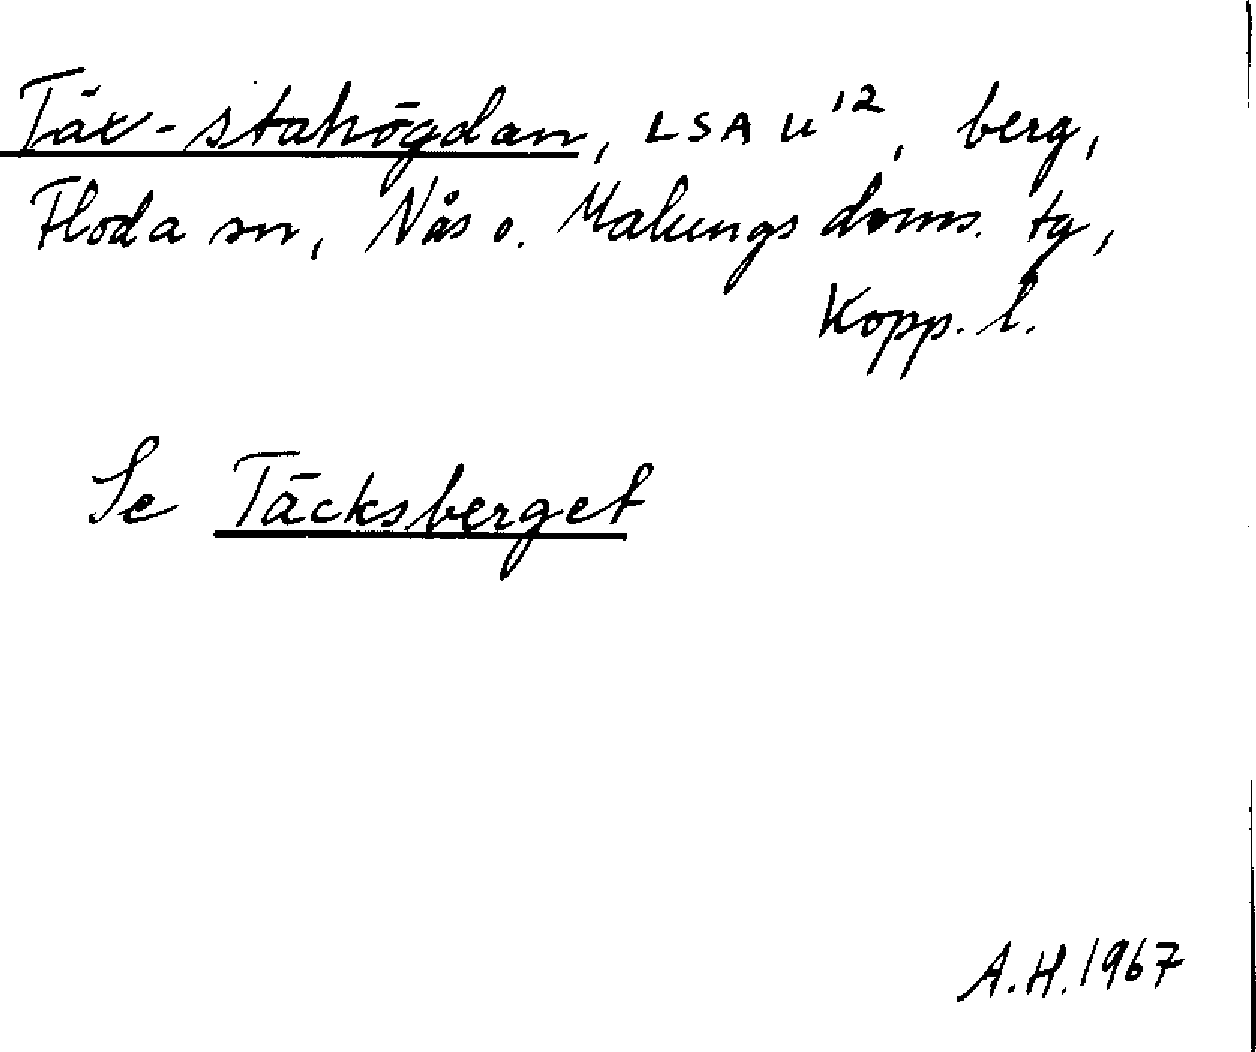 Täx-stahögdan, LSA U¹², berg,
Floda sn, Nås o. Malungs doms. tg,
Kopp. l.
Se Täcksberget
A.H. 1967